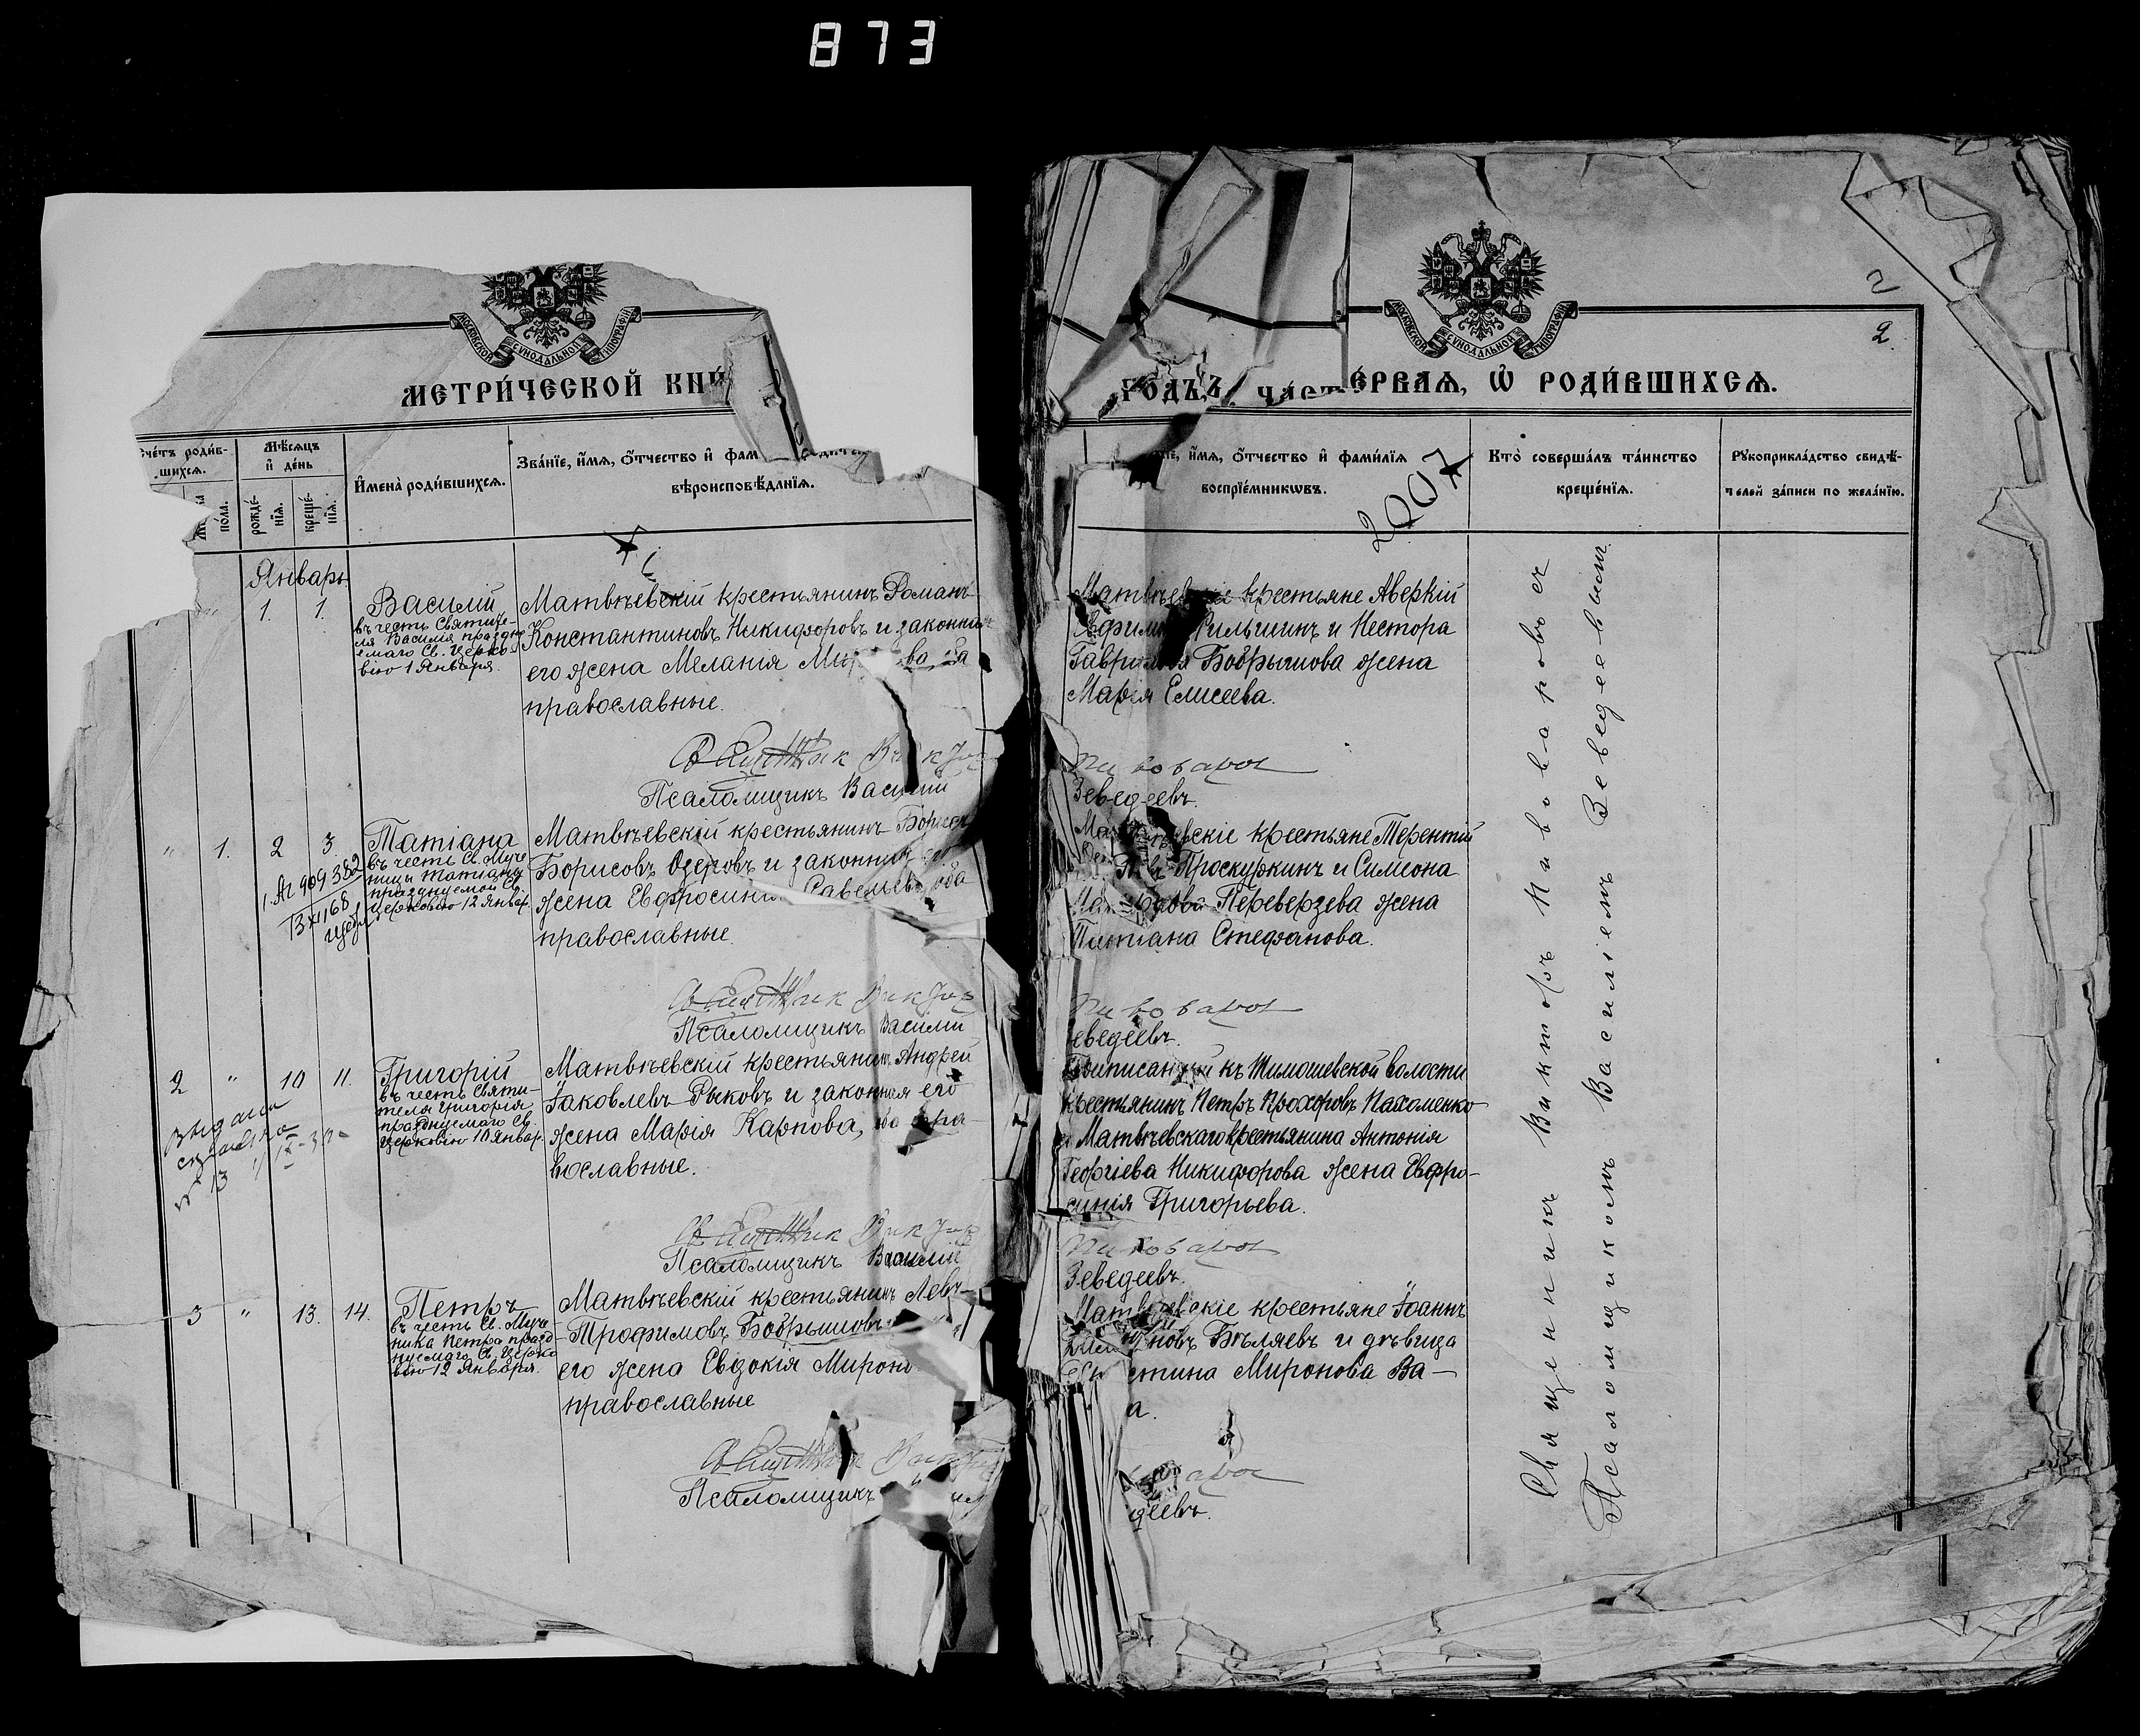 873
МОСКОВСКОЙ СУНОДАЛЬНОЙ ТИПОГРАФІИ
МЕТРИ́ЧЕСКОЙ КНИ́
Сче́тъ роди́в-
шихсѧ.
Мѣ́сѧцъ
и҆ де́нь
по́ла.
рожде́-
нїѧ.
креще́-
нїѧ.
И҆мена̀ роди́вшихсѧ.
Зва́нїе, и҆́мѧ, ѻ҆́тчество и҆ фам
вѣроисповѣ́данїѧ.
Январь
1. 1.
Василій
въ честь Святите-
ля Василія праздну
емаго Св. Церко-
вію 1 Января.
Матвѣевскій крестьянинъ Романъ
Константиновъ Никифоровъ и законная
его жена Меланія
православные.
Псаломщикъ Василій
" 1. 2 3.
Татіана
въ честь Св. Муче
ницы Татіаны
празднуемой Св.
Церковію 12 Январ.
Матвѣевскій крестьянинъ Борисъ
Борисовъ Озеровъ и законная его
жена Евфросинія Савельева, оба
православные.
Псаломщикъ Василій
2 " 10 11.
Григорій
въ честь Святи-
теля Григорія
празднуемаго Св.
Церковію 10 Январ.
Выдана
№ 13
Матвѣевскій крестьянинъ Андрей
Іаковлевъ Рыковъ и законная его
жена Марія Карпова, оба пра-
вославные.
Псаломщикъ Василій
3 " 13. 14.
Петръ
въ честь Св. Муче
ника Петра празд-
нуемаго Св. Церко
вію 12 Января.
Матвѣевскій крестьянинъ Левъ
Трофимовъ Бобрышовъ
его жена Евдокія Мирон
православные
Псаломщикъ
МОСКОВСКОЙ СУНОДАЛЬНОЙ ТИПОГРАФІИ
2
2.
ГОДЪ, ЧАСТЬ ЕРВАѦ, Ѡ҆ РОДИ́ВШИХСѦ.
їе, и҆́мѧ, ѻ҆́тчество и҆ фами́лїѧ
воспрїе́мникѡвъ.
2007
Кто̀ соверша́лъ та́инство
креще́нїѧ.
Рꙋкоприкла́дство свидѣ́-
телей за́писи по жела́нїю.
Матвѣевскіе крестьяне Аверкій
Фильшинъ и Нестора
Гаврилова Бобрышова жена
Марія Елисеева.
Пивоваровъ
Зеведеевъ.
Матвѣевскіе крестьяне Терентій
Проскуркинъ и Симеона
Переверзева жена
Татіана Стефанова.
Пивоваровъ
Зеведеевъ.
Приписанный къ Тимошевской волости
крестьянинъ Петръ Прохоровъ Пахоменко
и Матвѣевскаго крестьянина Антонія
Георгіева Никифорова жена Евфро-
синія Григорьева.
Пивоваровъ
Зеведеевъ.
Матвѣевскіе крестьяне Іоаннъ
новъ Бѣляевъ и дѣвица
стина Миронова Ва-
а.
деевъ.
Священникъ Викторъ Пивоваровъ съ
Псаломщикомъ Василіемъ Зеведеевымъ.